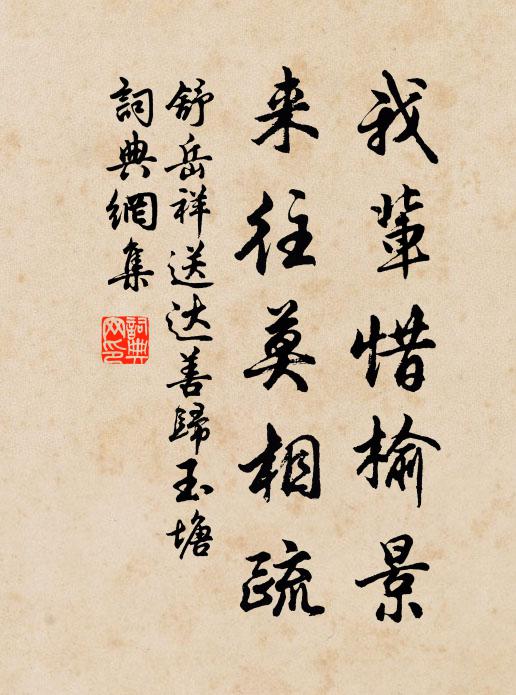 我輩惜榆景
来往莫相疏
舒岳祥送达善歸玉塘
詞典網集
詞典网印